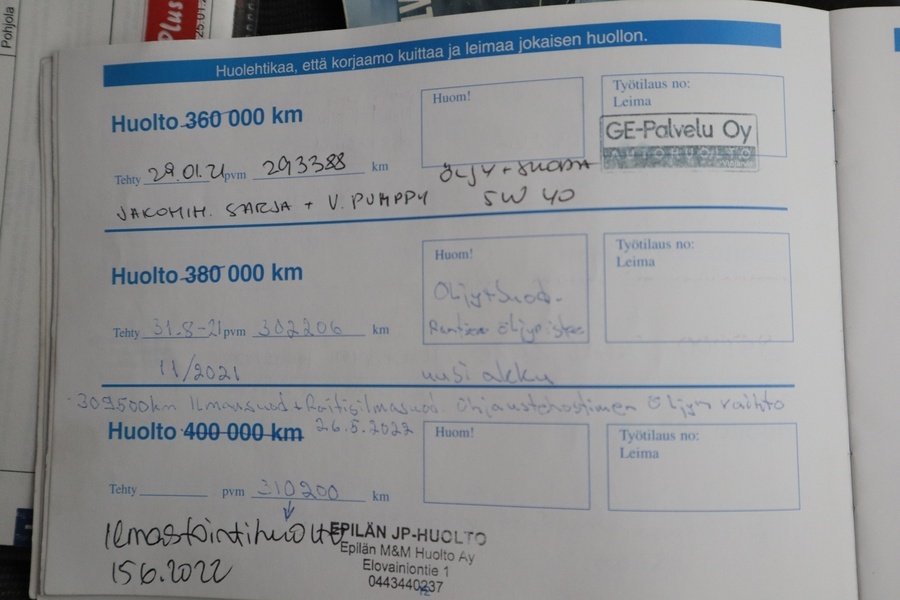 Pohjola
Plus
25.01.2
Huolehtikaa, että korjaamo kuittaa ja leimaa jokaisen huollon.
Huolto 360 000 km
Huom!
Työtilaus no:
Leima
GE-Palvelu Oy
AUTOHUOLTO
Tehty 29.01.21 pvm 293388 km
ÖLJY + SUODA
JAKOHIH. SARJA + V. PUMPPY
5W 40
Huolto 380 000 km
Huom!
Työtilaus no:
Leima
Öljy+Suod-
öljynistee
Tehty 31.8-21 pvm 302206 km
11/2021
uusi akku
309500km Ilmansuod + Raitisilmasuod. Ohjaustehostimen Öljyn vaihto
Huolto 400 000 km
26.5.2022
Huom!
Työtilaus no:
Leima
Tehty pvm 310200 km
Ilmastointihuolto
15.6.2022
EPILÄN JP-HUOLTO
Epilän M&M Huolto Ay
Elovainiontie 1
0443440237